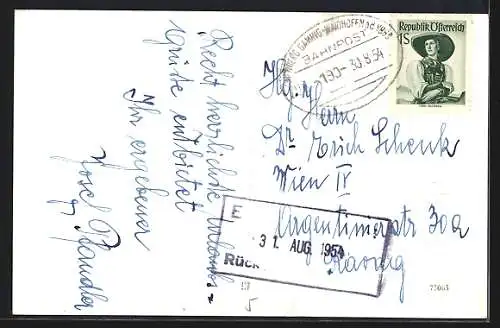 Recht herzlichste Urlaubs=
grüße entbietet
Ihr ergebener
Josef Pfandler
GAMING-WAIDHOFEN a.d. YBBS
BAHNPOST
190 - 30.8.54
Republik Österreich
1S
Hg. Herrn
Dr Erich Schenk
Wien IV
Argentinierstr 30a
E
31. AUG. 1954
Rück
5